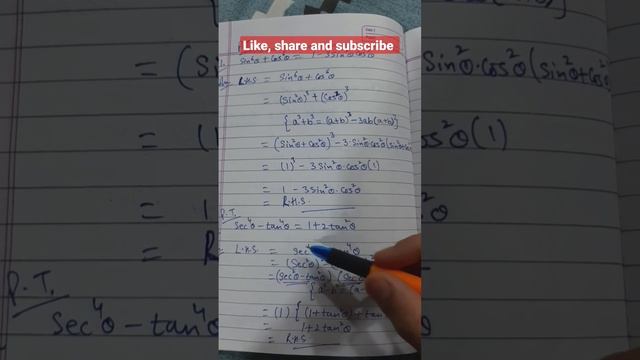 Like, share and subscribe
sin⁶θ + cos⁶θ = 1 - 3 sin²θ
L.H.S = Sin⁶θ + cos⁶θ
= (Sin²θ)³ + (Cos²θ)³
{a³+b³ = (a+b)³ - 3ab(a+b)}
= (Sin²θ + Cos²θ)³ - 3 · Sin²θ · cos²θ (sin²θ+
= (1)³ - 3 Sin²θ · cos²θ (1)
= 1 - 3 Sin²θ · cos²θ
= R.H.S.
P.T.
Sec⁴θ - tan⁴θ = 1 + 2 tan²θ
L.H.S = sec⁴ tan⁴θ
= (Sec²θ)²
= (Sec²θ - tan²θ) (Sec
{a²-b² = (a-
= (1) {(1 + tan²θ) + tan
= 1 + 2 tan²θ
= R.H.S
= (Sin
= (1)
=
= R
P.T.
Sec⁴θ - tan⁴
Sin²θ · Cos²θ (Sin²θ + Co
²θ · cos²θ (1)
s²θ
2 tan²θ